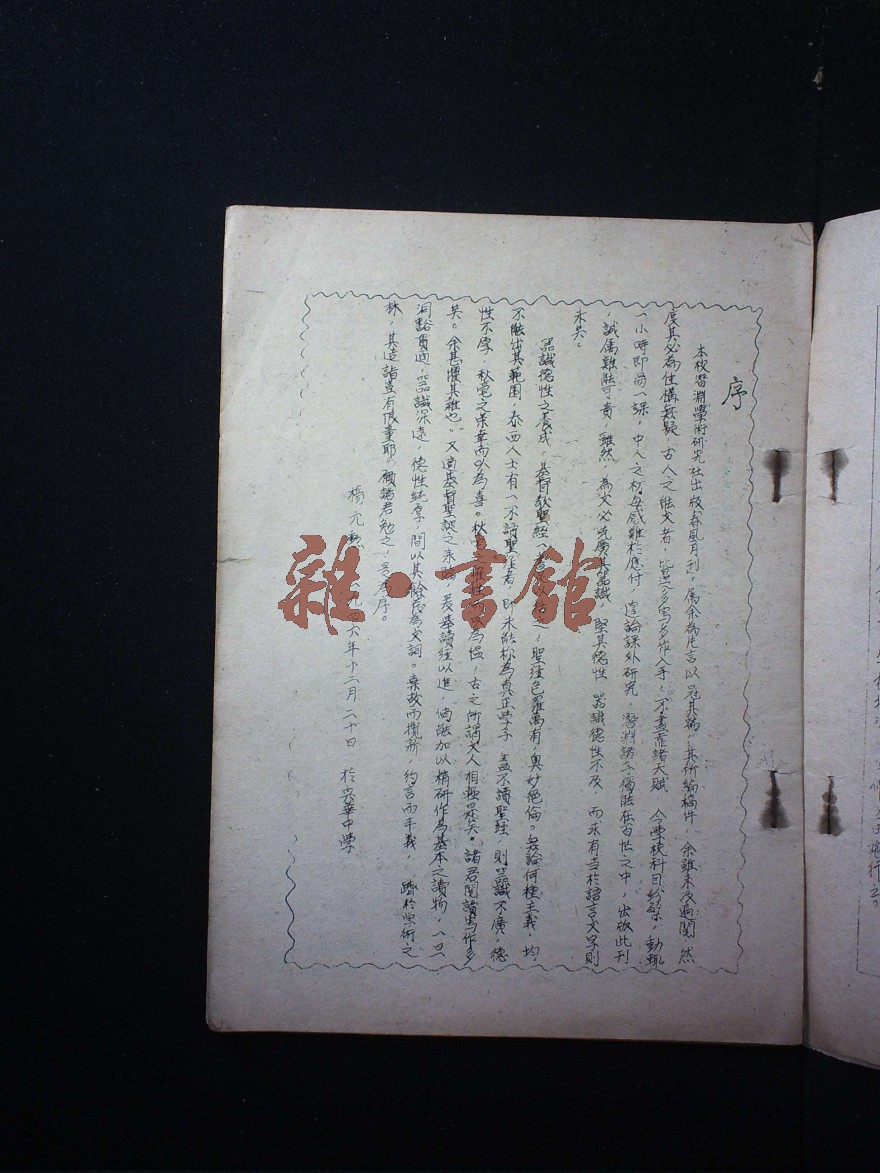 序
本校習淵學術研究社出版春風月刊，屬余為片言以冠其端，其所編稿件，余雖未及遍閱 然
度其必為佳構無疑，古人之能文者，皆從多寫多作入手，不盡靠諸天賦 今學校科目紛繁，動輒
一小時即易一課，中人之材每感難於應付，遑論課外研究，習淵諸子偶能在百忙之中，出版此刊
，誠屬難能可貴，雖然，為文必先廣其器識，堅其德性 器識德性不及 而求有当於語言文字則
未矣。
器識德性之養成，基督教聖經 聖經包羅萬有，奧妙絕倫。無論何種主義，均
不能出其範圍，泰西人士有一不讀聖經者，即未能称為真正學子 盖不讀聖經，則器識不廣，德
性不厚，秋電之榮幸而以為喜。秋 為愠，古之所謂文人相輕是矣。諸君閱讀寫作多
矣。余甚懼其雜也。又適基督聖誕之来 爰舉讀經以進，倘能加以精研作為基本之讀物，一旦
洞豁貫通，器識深遠，德性純厚，間以其餘 為文詞。棄故而攬新，約言而丰義， 躋於學術之
林，其造詣豈有 量耶，願諸君勉之，是為序。
楊元 九四六年十二月二十日 於 華中學
雜·書館
施行之。